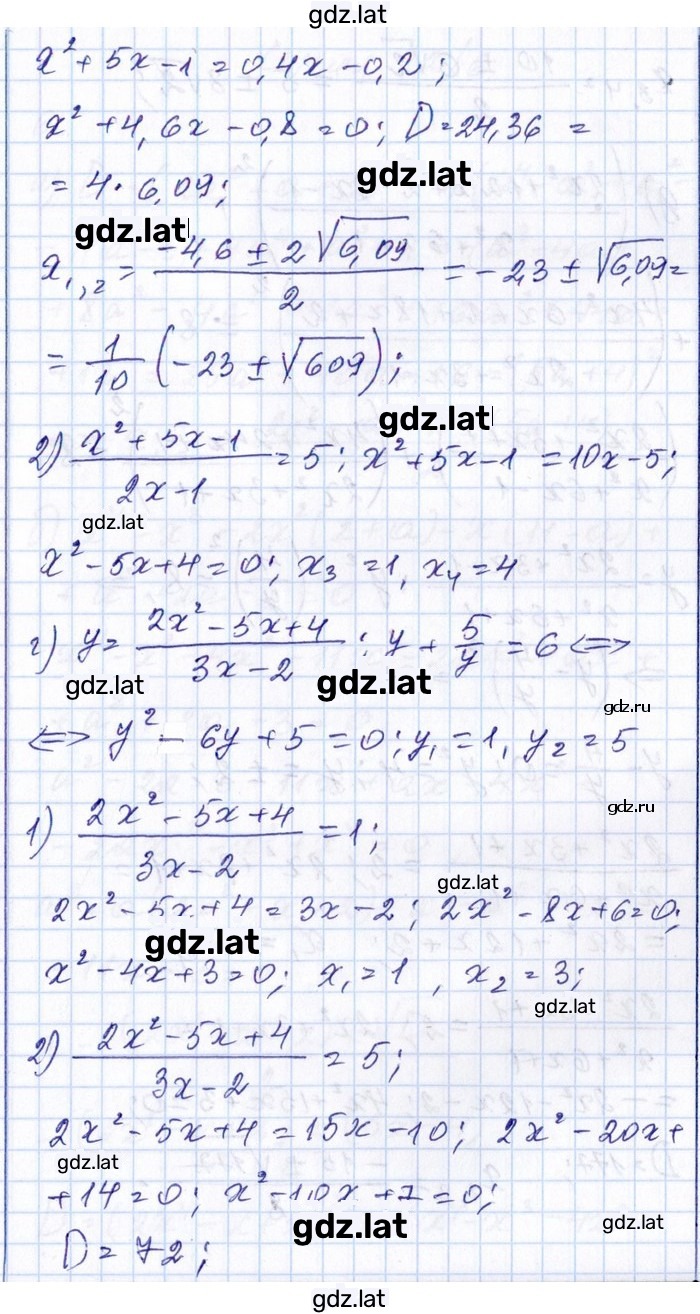 gdz.lat
x² + 5x - 1 = 0,4x - 0,2;
x² + 4,6x - 0,8 = 0; D = 24,36 =
gdz.lat
= 4 · 6,09;
gdz.lat
x₁,₂ = (-4,6 ± 2√6,09)/2 = -2,3 ± √6,09 =
= 1/10 (-23 ± √609);
gdz.lat
2) (x² + 5x - 1)/(2x - 1) = 5; x² + 5x - 1 = 10x - 5;
gdz.lat
x² - 5x + 4 = 0; x₃ = 1, x₄ = 4
г) y = (2x² - 5x + 4)/(3x - 2); y + 5/y = 6 <=>
gdz.lat
gdz.lat
gdz.ru
<=> y² - 6y + 5 = 0; y₁ = 1, y₂ = 5
gdz.ru
1) (2x² - 5x + 4)/(3x - 2) = 1;
gdz.lat
2x² - 5x + 4 = 3x - 2; 2x² - 8x + 6 = 0;
gdz.lat
x² - 4x + 3 = 0; x₁ = 1, x₂ = 3;
gdz.lat
2) (2x² - 5x + 4)/(3x - 2) = 5;
2x² - 5x + 4 = 15x - 10; 2x² - 20x +
gdz.lat
+ 14 = 0; x² - 10x + 7 = 0;
gdz.lat
gdz.lat
D = 72;
gdz.lat